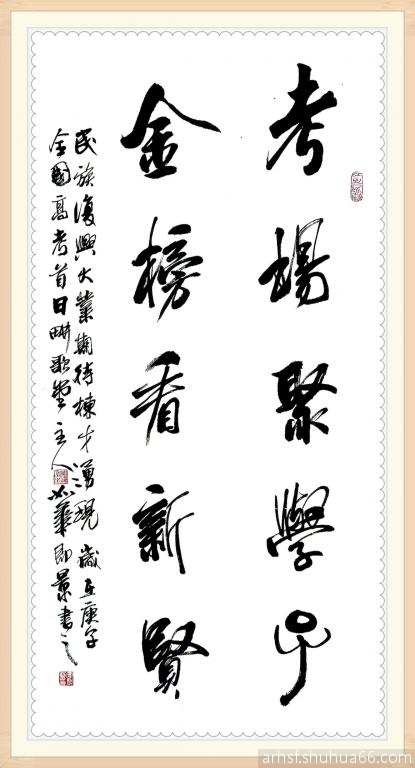 考場聚學子
金榜看新賢
民族復興大業期待棟才湧現 歲在庚子
全國高考首日畊歌堂主人 华即景書之
arhsf.shuhua66.com